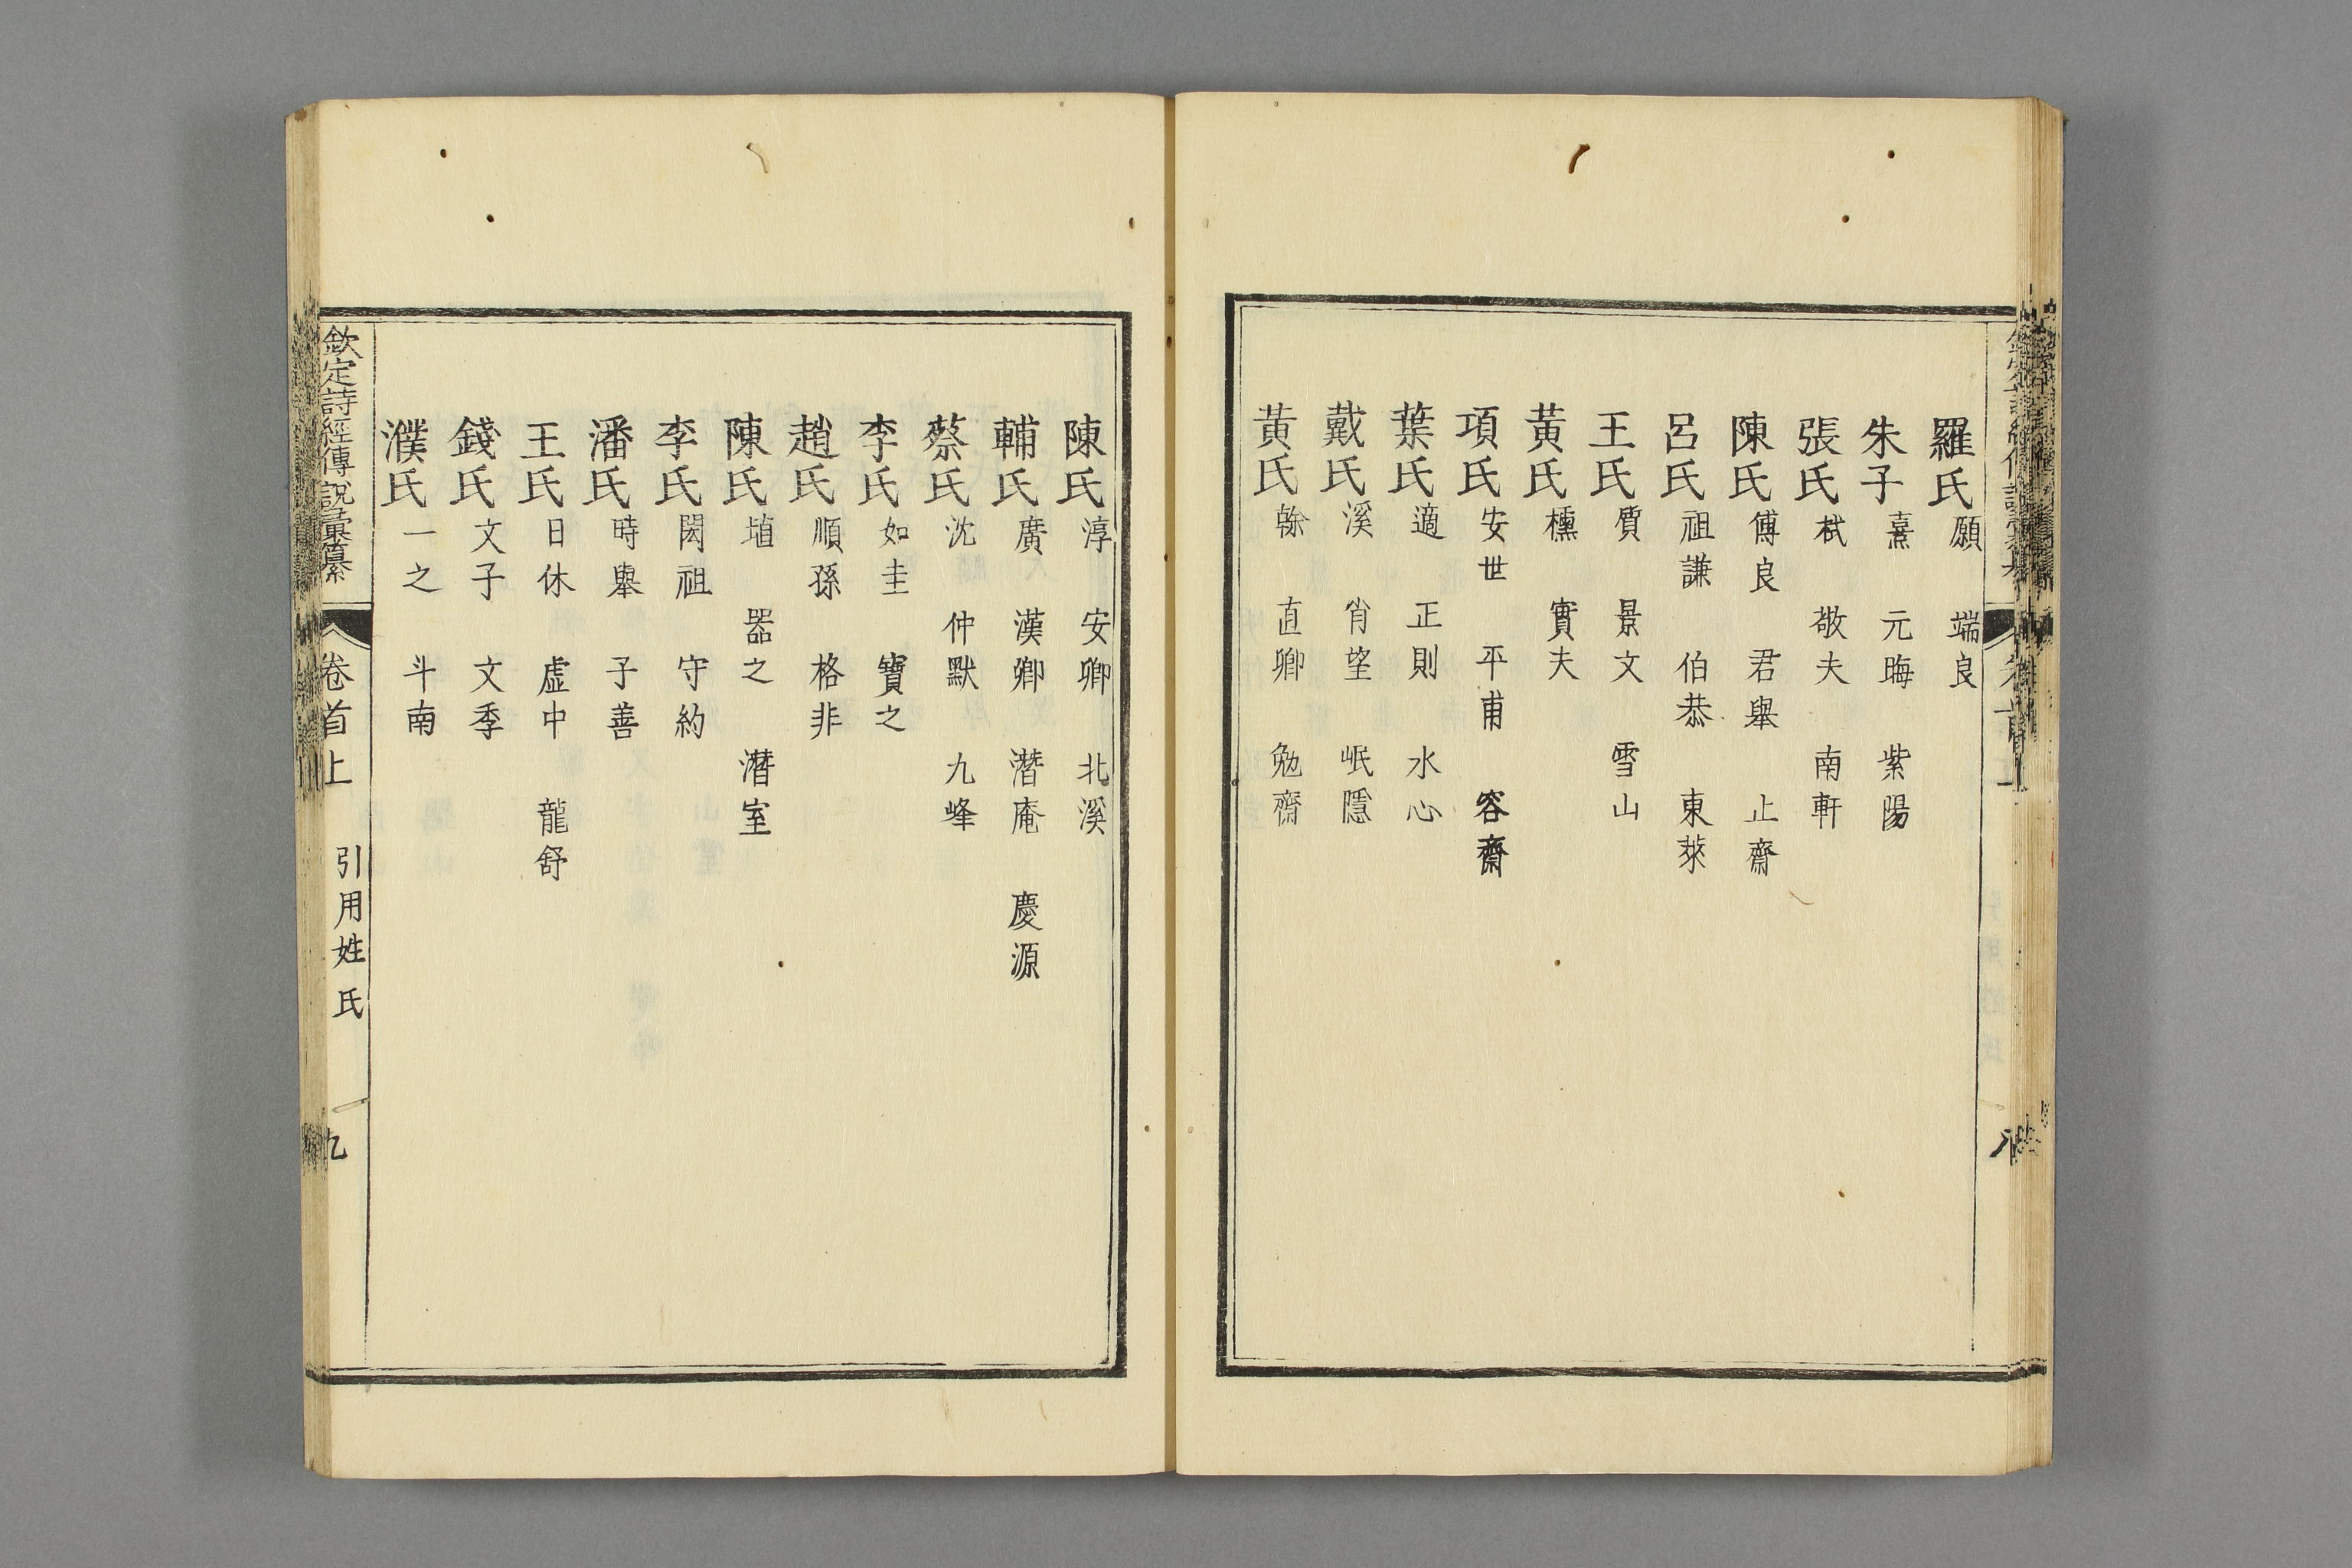 羅氏願 端良
朱子熹 元晦 紫陽
張氏栻 敬夫 南軒
陳氏傅良 君舉 止齋
呂氏祖謙 伯恭 東萊
王氏質 景文 雪山
黃氏櫄 實夫
項氏安世 平甫 容齋
葉氏適 正則 水心
戴氏溪 肖望 岷隱
黃氏榦 直卿 勉齋
陳氏淳 安卿 北溪
輔氏廣 漢卿 潛庵 慶源
蔡氏沈 仲默 九峰
李氏如圭 寶之
趙氏順孫 格非
陳氏埴 器之 潛室
李氏閎祖 守約
潘氏時舉 子善
王氏日休 虛中 龍舒
錢氏文子 文季
濮氏一之 斗南
欽定詩經傳說彙纂 卷首上 引用姓氏 九